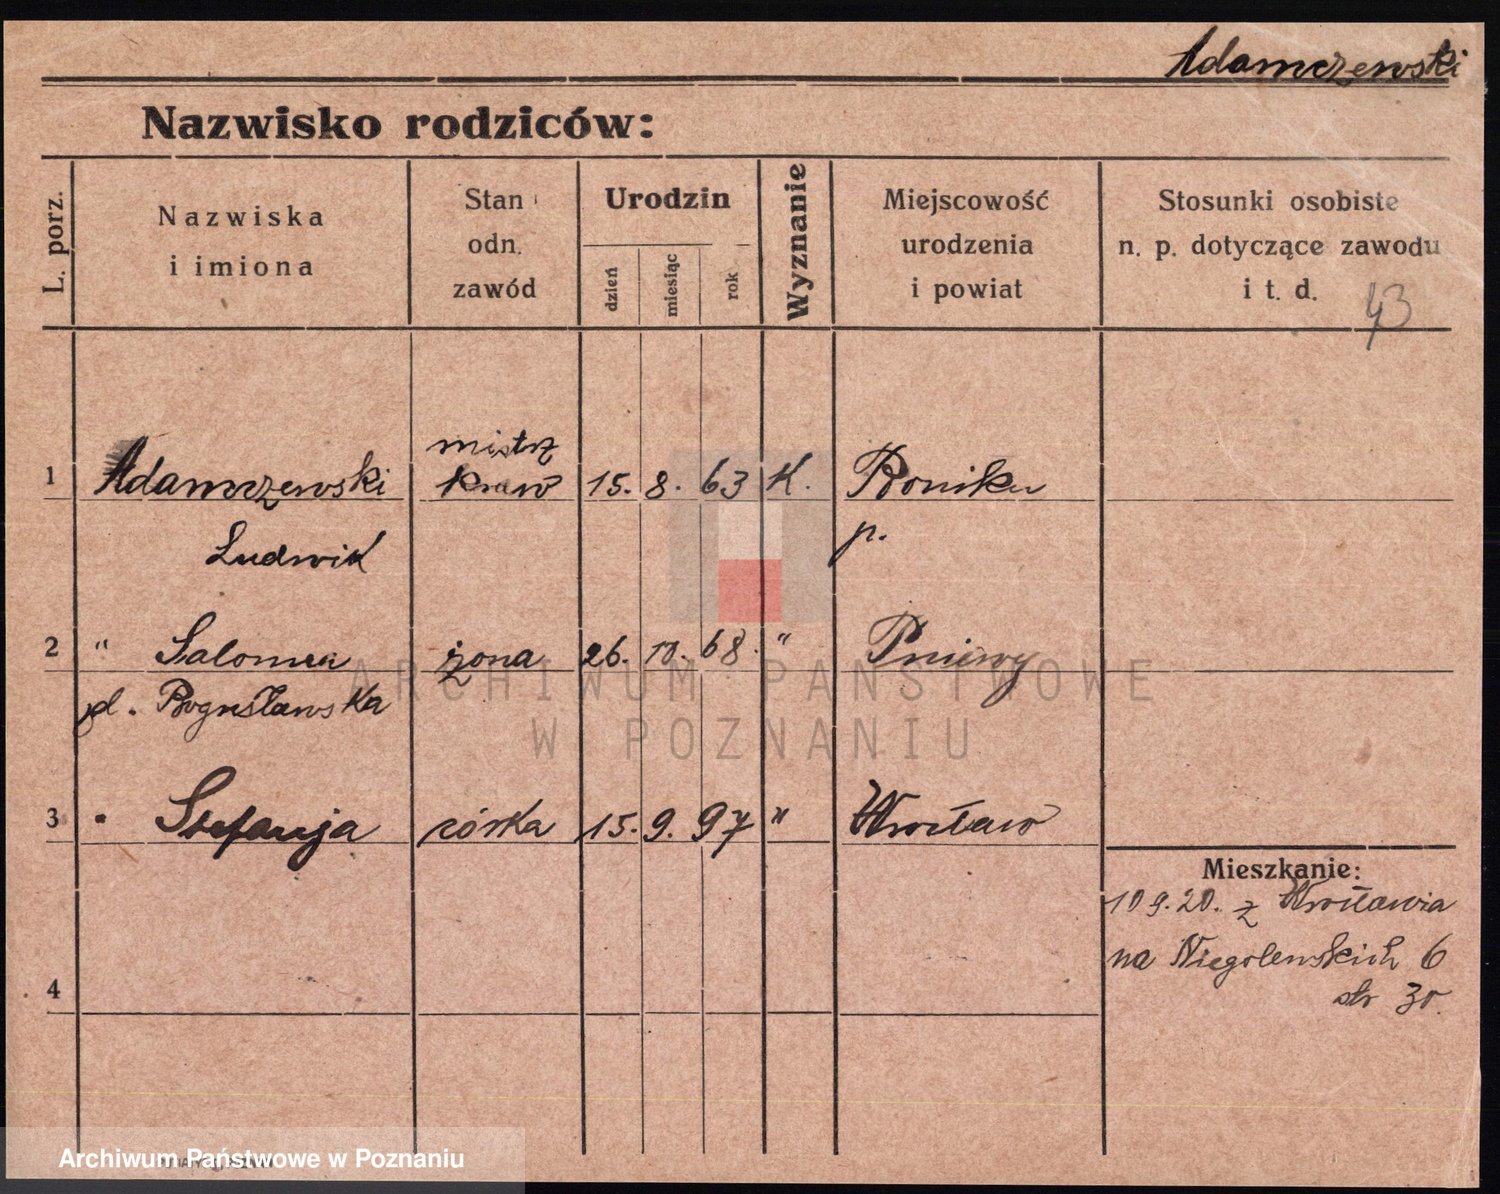 Adamczewski
Nazwisko rodziców:
L. porz.
Nazwiska
i imiona
Stan
odn.
zawód
Urodzin
dzień
miesiąc
rok
Wyznanie
Miejscowość
urodzenia
i powiat
Stosunki osobiste
n. p. dotyczące zawodu
i t. d.
43
mistrz
1 Adamczewski kraw 15. 8. 63 K.
Ludwik p.
2 " Salomea żona 26. 10. 68. " Pniewy
d. Bogusławska
3 " Stefanja córka 15. 9. 97 " Wrocław
Mieszkanie:
10 9. 20. z Wrocławia
na Niegolewskich 6
4
ARCHIWUM PAŃSTWOWE
W POZNANIU
Archiwum Państwowe w Poznaniu